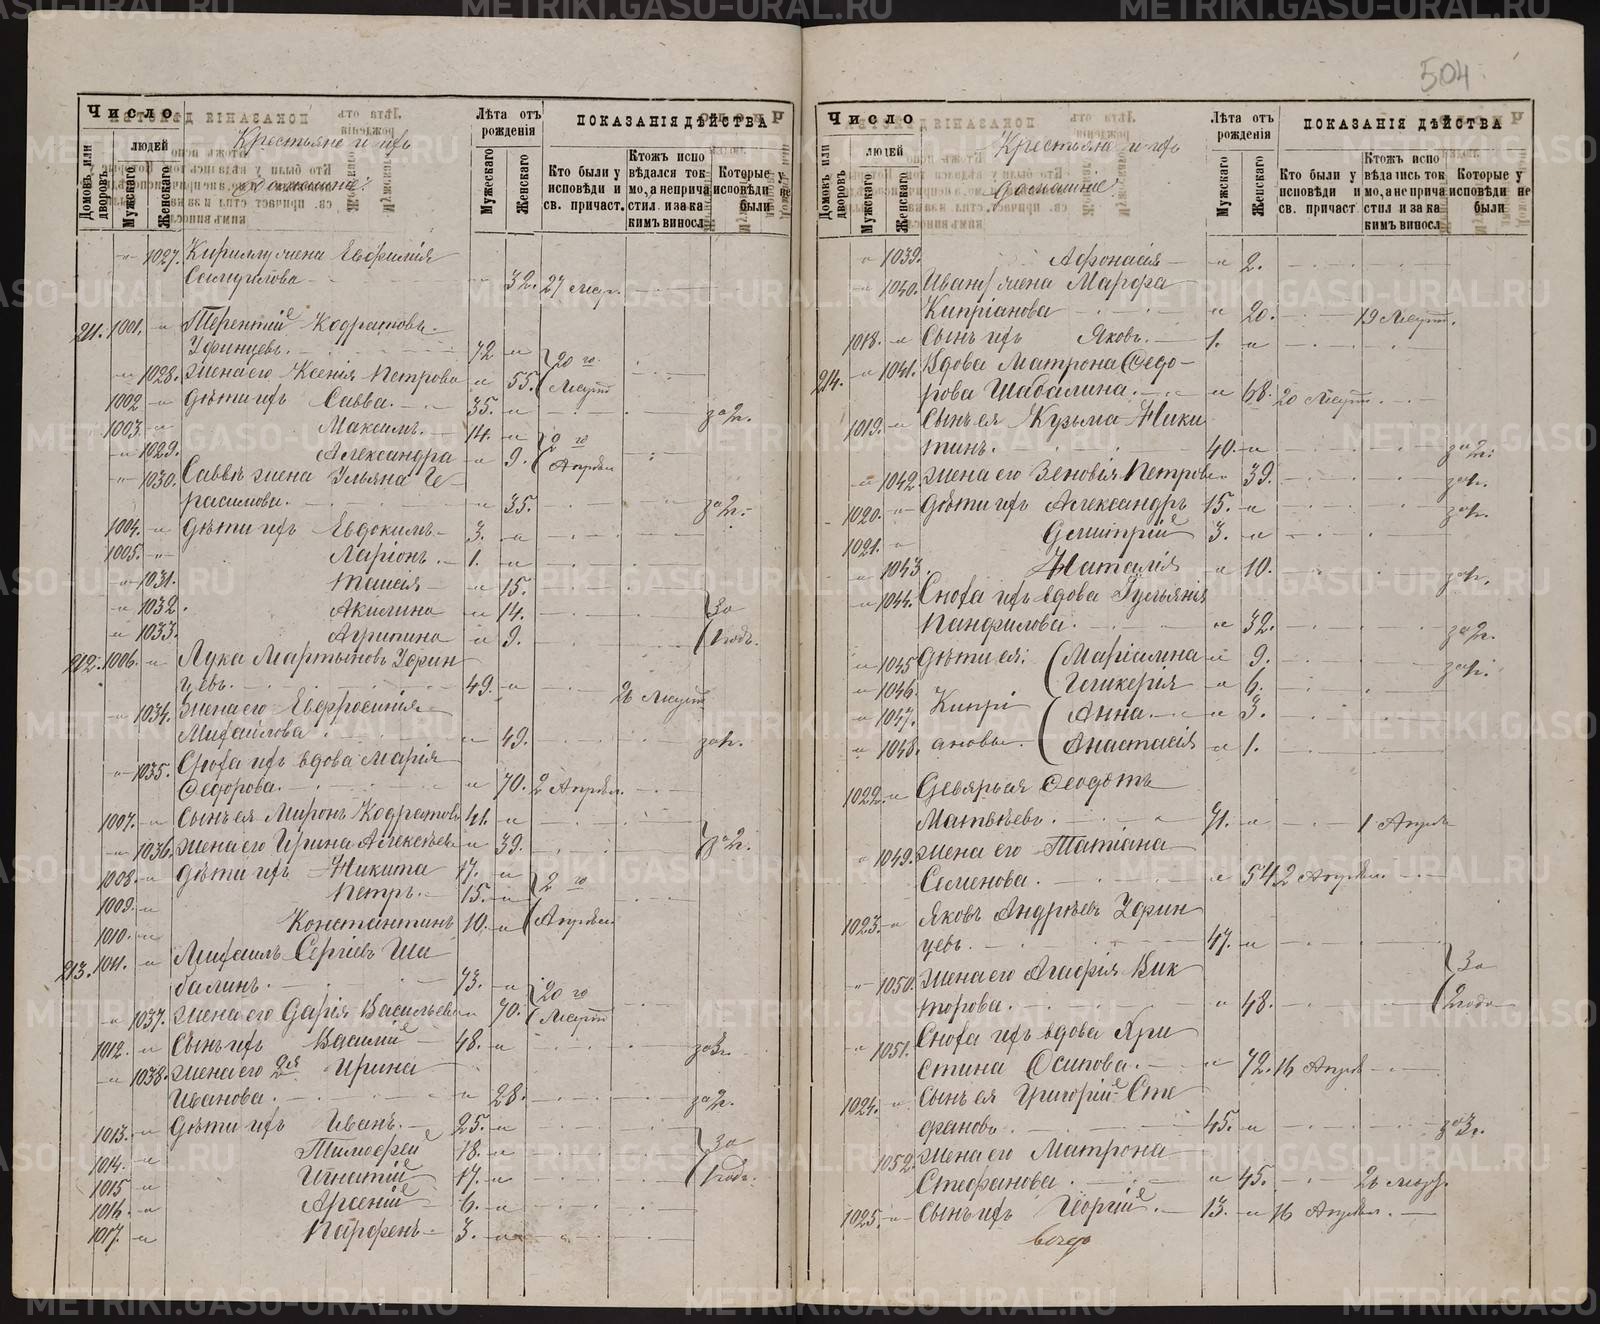 504
Число
Лѣта отъ рожденія
ПОКАЗАНІЯ ДѢЙСТВА
Домовъ или дворовъ
людей
Мужскаго
Женскаго
Крестьяне и ихъ
домашніе
Мужескаго
Женскаго
Кто были у исповѣди и св. причаст.
Ктожъ испо вѣдался ток мо, а неприча стил. и за ка кимъ виносл
Которые у исповѣди не были
1027. Кириллу жена Евфимія
32. 27 Мар.
211. 1001. Терентій Кодратовъ
Уфинцевъ. 72 20 го
1028. жена его Ксенія Петрова 55. Март
1002 дѣти ихъ Савва. 35. за 2г.
1003 Максимъ. 14. 2 го
1029. Александра 9. Апрѣл
1030. Саввѣ жена Ульяна Ге
расимова. 35. за 2г.
1004. дѣти ихъ Евдокимъ 3.
1005. Ларіонъ. 1.
1031. Таисія 15.
1032. Акилина 14. За
1033. Агрипина 9. 1 годъ.
212. 1006. Лука Мартыновъ Уфин
цевъ. 49. 26 Март
1034. жена его Евфросинія
Михайлова 49. за 1г.
1035. Сноха ихъ вдова Марія
Ѳедорова. 70. 2 Апрѣл.
1007. Сынъ ея Миронъ Кодратовъ 41.
1036. жена его Ирина Алексѣева 39. за 2г.
1008. дѣти ихъ Никита 17. 2 го
1009. Петръ. 15.
1010. Константинъ 10. Апрѣля
213. 1011. Михаилъ Сергіевъ Ша
балинъ. 73. 20 го
1037. жена его Дарія Васильева 70. Март
1012. Сынъ ихъ Василій 48. за 3г.
1038. жена его 2я Ирина
Иванова. 28. за 2г.
1013. дѣти ихъ Иванъ. 25.
1014. Тимофей 18. За
1015 Игнатій 17. 1 годъ.
1016. Арсеній 6.
1017. Парфенъ 3.
Число
Лѣта отъ рожденія
ПОКАЗАНІЯ ДѢЙСТВА
Домовъ или дворовъ
людей
Мужскаго
Женскаго
Крестьяне и ихъ
домашніе
Мужскаго
Женскаго
Кто были у исповѣди и св. причаст
Ктожъ испо вѣдались ток мо, а не прича стил и за ка кимъ виносл
Которые у исповѣди не были
1039. Афонасія 2.
1040. Ивану жена Марфа
Кипріанова 20. 19 Март.
1018. Сынъ ихъ Яковъ. 1.
214. 1041. Вдова Матрона Ѳедо
рова Шабалина. 68. 20 Март.
1019. Сынъ ея Кузьма Ники
тинъ. 40. за 2г.
1042. жена его Зеновія Петрова 39. за 1г.
1020. дѣти ихъ Александръ 15. за 1г.
1021. Дмитрій 3.
1043. Наталія 10. за 1г.
1044. Сноха ихъ вдова Іульянія
Панфилова. 32. за 2г.
1045 дѣти ея: Маріамна 9. за 1г.
1046. Гликерія 6.
1047. Кипрі Анна. 3.
1048. ановы. Анастасія 1.
1022. Деверья Ѳеодотъ
Матвѣевъ. 71. 1 Апрѣл
1049. жена его Татіана
Семенова. 54. 2 Апрѣл.
1023. Яковъ Андрѣевъ Уфин
цевъ. 47.
1050. жена его Агафія Вик За
торова. 48. 2 года
1051. Сноха ихъ вдова Хри
стина Осипова. 72. 16 Апрѣл
1024. Сынъ ея Григорій Сте
фановъ. 45. за 3г.
1052. жена его Матрона
Стефанова. 45. 26 Мар.
1025. Сынъ ихъ Георгій. 13. 16 Апрѣл.
METRIKI.GASO-URAL.RU